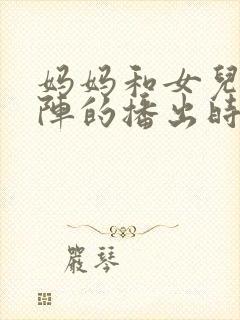 妈妈和女兒
陣的播出時
嚴琴